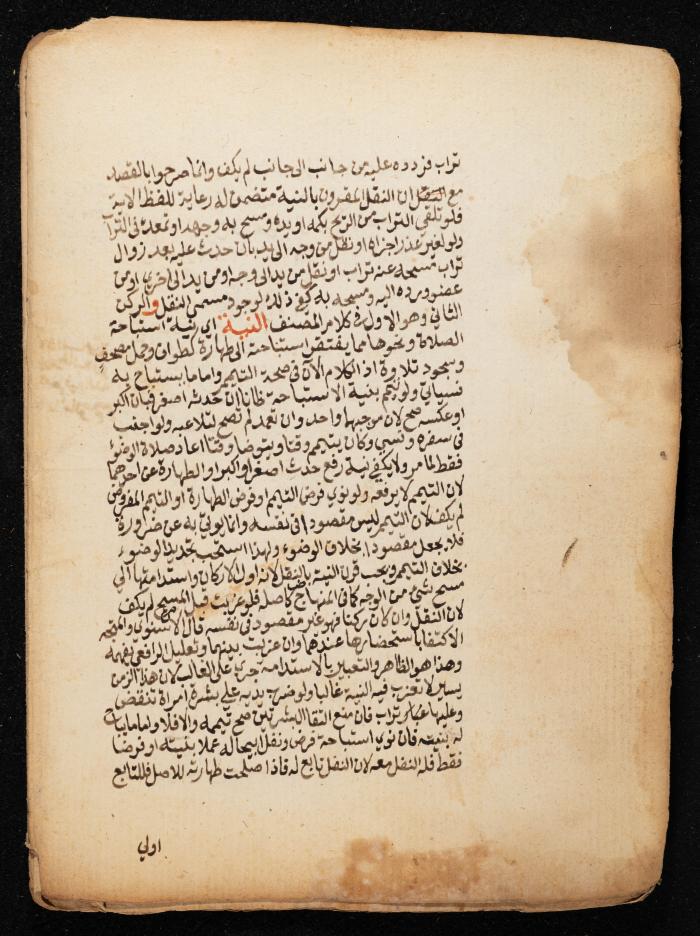 تراب فردده عليه من جانب الى جانب لم يكف وانما صرحوا بالقصد
مع النقل لان النقل المقرون بالنية متضمن له رعاية للفظ الاية
فلو تلقى التراب من الريح بكمه او يده ومسح به وجهه او تمعك فى التراب
ولو لغير عذر اجزاه او نقل من وجه الى يد بان حدث عليه بعد زوال
تراب مسحه عنه تراب او نقل من يد الى وجه او من يد الى اخري او من
عضو ورده اليه ومسحه به كفى ذلك لوجود مسمى النقل و الركن
الثاني وهو الاول فى كلام المصنف النية اي نية استباحة
الصلاة ونحوها مما يفتقر استباحته الى طهارة كطواف وحمل مصحف
وسجود تلاوة اذ الكلام الان فى صحة التيمم واما ما يستباح به
فسياتي ولو تيمم بنية الاستباحة ظانا ان حدثه اصغر فبان اكبر
او عكسه صح لان موجبهما واحد وان تعمد لم تصح لتلاعبه ولو اجنب
فى سفره ونسي وكان يتيمم وقتا ويتوضا وقتا اعاد صلاة الوضوء
فقط لما مر ولا يكفى نية رفع حدث اصغر او اكبر او الطهارة عن احدهما
لان التيمم لا يرفعه ولو نوي فرض التيمم او فرض الطهارة او التيمم المفروض
لم يكف لان التيمم ليس مقصودا فى نفسه وانما يوتى به عن ضرورة
فلا يجعل مقصودا بخلاف الوضوء ولهذا استحب تجديد الوضوء
بخلاف التيمم ويجب قرن النية بالنقل لانه اول الاركان واستدامتها الي
مسح شئ من الوجه كما فى المنهاج كاصله فلو عزبت قبل المسح لم يكف
لان النقل وان كان ركنا فهو غير مقصود فى نفسه قال الاسنوي والمتجه
الاكتفا باستحضارها عندهما وان عزبت بينهما وتعليل الرافعي يفهمه
وهذا هو الظاهر والتعبير بالاستدامة جري على الغالب لان هذا الزمن
يسير لا تعزب فيه النية غالبا ولو ضرب يديه على بشرة امراة تنقض
وعليها تراب فان منع التقا البشرتين صح تيممه والا فلا واما ما يباح
له بنيته فان نوي استباحة فرض ونفل ابيحا له عملا بنيته او فرضا
فقط فله النفل معه لان النفل تابع له فاذا صلحت طهارته للاصل فللتابع
اولي